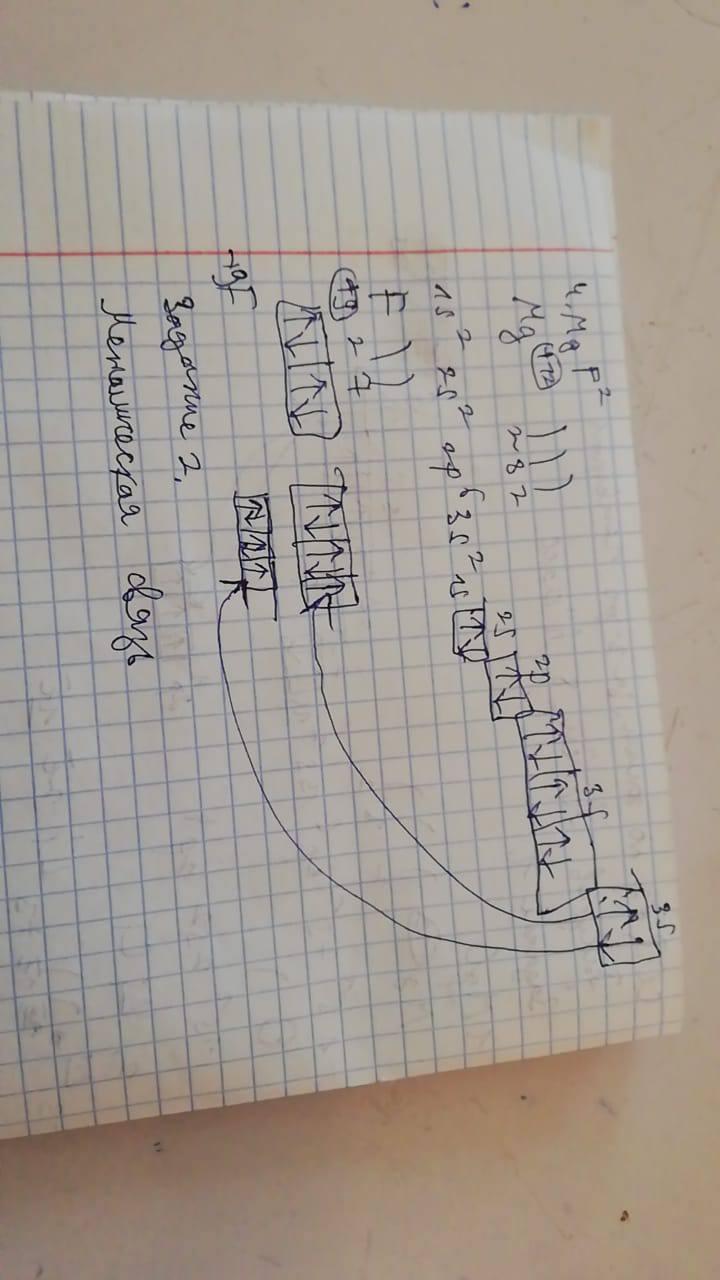 4. Mg F²
Mg +12 ) ) )
2 8 2
1s² 2s² 2p⁶ 3s²
1s
2s
2p
3s
3s
F ) )
+9 2 7
+9F
Задание 2.
Меналическая связь